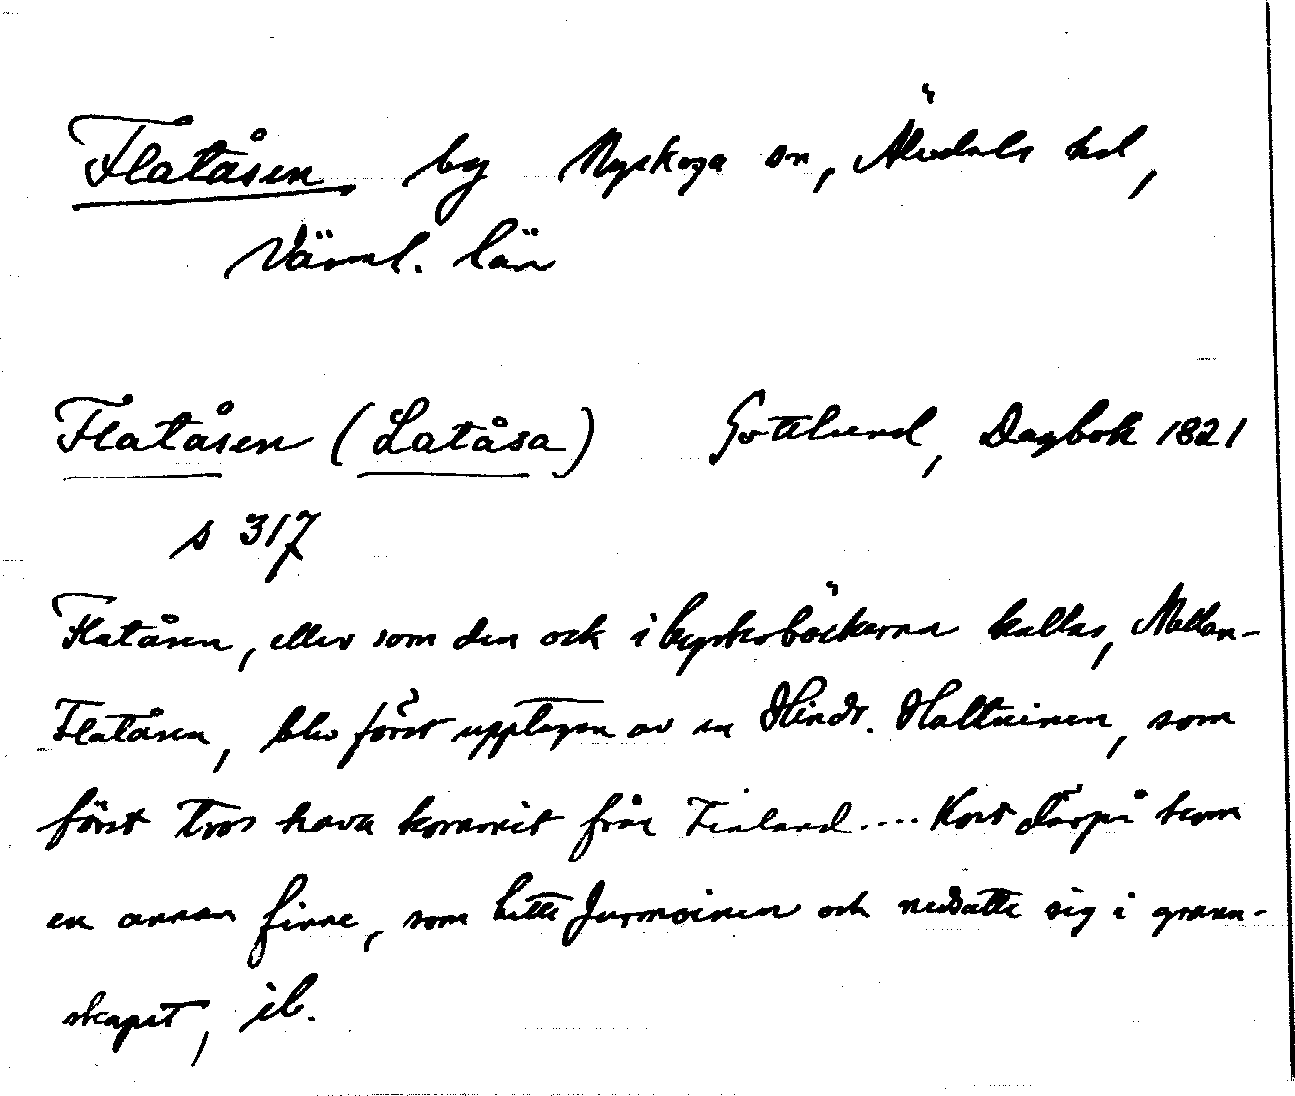 Flatåsen by Nyskoga sn, Älvdals hd,
Värml. län
Flatåsen (Latåsa) Gottlund, Dagbok 1821
s 317
Flatåsen, eller som den ock i kyrkoböckerna kallas, Mellan-
Flatåsen, blev först upptagen av en Hindr. Haltuinen, som
först tros hava kommit från Finland.... Kort därpå kom
en annan finne, som hette Jurmoinen och nedsatte sig i grann-
skapet, ib.